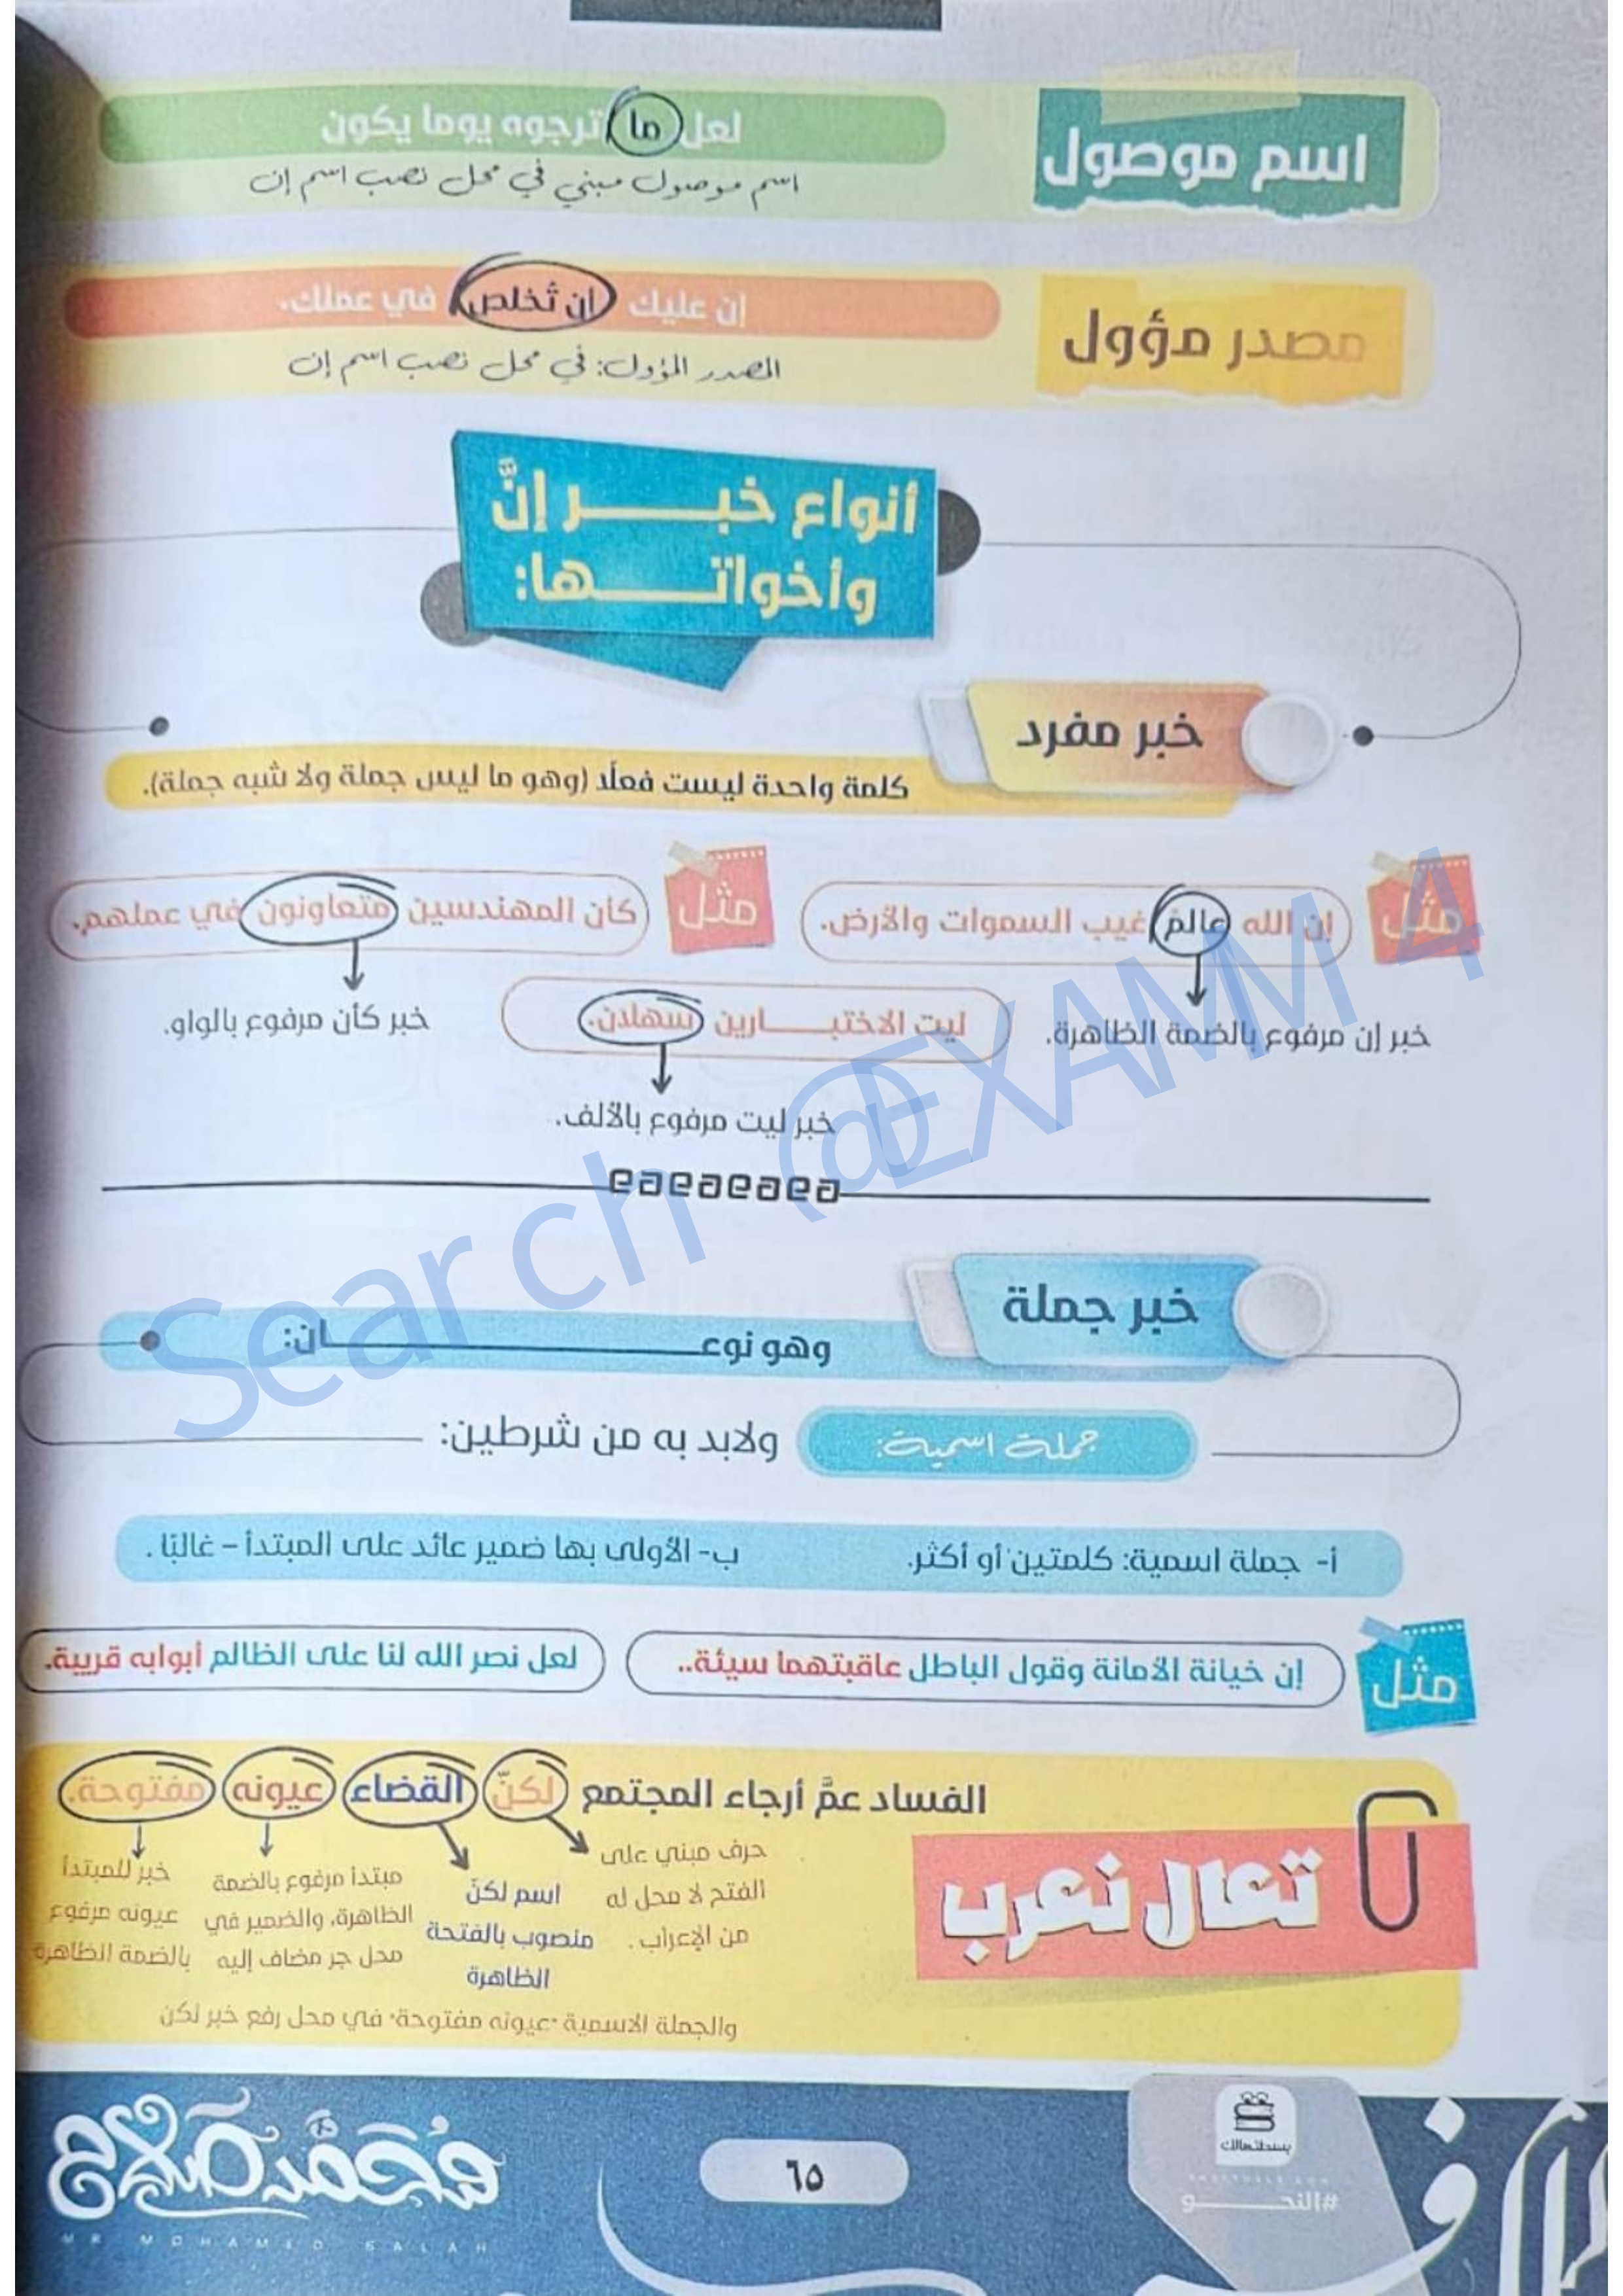 اسم موصول
لعل ما ترجوه يوما يكون
اسم موصول مبني في محل نصب اسم إن
مصدر مؤول
إن عليك أن تُخلص في عملك.
المصدر المؤول: في محل نصب اسم إن
أنواع خبــــر إنَّ
وأخواتــــها:
خبر مفرد
كلمة واحدة ليست فعلًا (وهو ما ليس جملة ولا شبه جملة).
مثل
إن الله عالمُ غيب السموات والأرض.
مثل
كأن المهندسين متعاونون في عملهم.
خبر إن مرفوع بالضمة الظاهرة.
ليت الاختبــــارين سهلان.
خبر كأن مرفوع بالواو.
خبر ليت مرفوع بالألف.
Search @EXAMM 4
خبر جملة
وهو نوعــــــــان:
جملة اسمية:
ولابد به من شرطين:
أ- جملة اسمية: كلمتين أو أكثر.
ب- الأولى بها ضمير عائد على المبتدأ – غالبًا .
مثل
إن خيانة الأمانة وقول الباطل عاقبتهما سيئة..
لعل نصر الله لنا على الظالم أبوابه قريبة.
الفساد عمَّ أرجاء المجتمع لكنّ القضاء عيونه مفتوحة.
تعال نعرب
حرف مبني على
الفتح لا محل له
من الإعراب .
اسم لكنّ
منصوب بالفتحة
الظاهرة
مبتدأ مرفوع بالضمة
الظاهرة، والضمير في
محل جر مضاف إليه
خبر للمبتدأ
عيونه مرفوع
بالضمة الظاهرة
والجملة الاسمية "عيونه مفتوحة" في محل رفع خبر لكن
بسطتهالك
#النحــــو
٦٥
محمد صلاح
MR MOHAMED SALAH